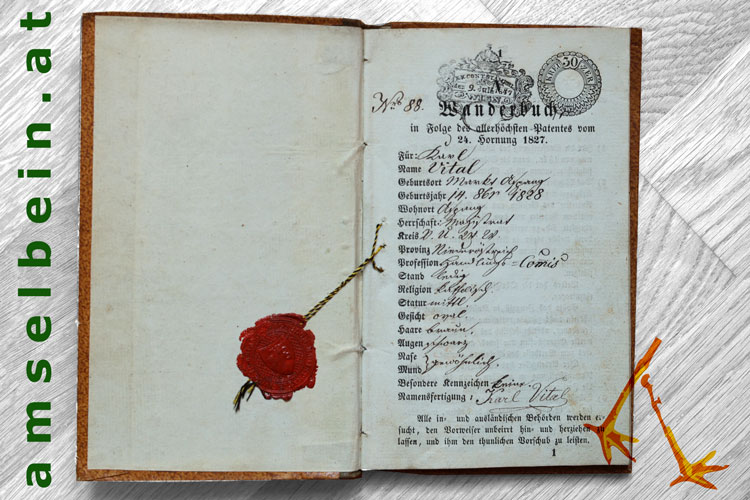 amselbein.at
30
KREUZER
9. Juli 1847
Nro 88.
Wanderbuch,
in Folge des allerhöchsten Patentes vom
24. Hornung 1827.
Für: Karl
Name Vital
Geburtsort Markt Aspang
Geburtsjahr 14. 8br 1828
Wohnort Aspang
Herrschaft: Magistrat
Kreis V. U. W. W.
Provinz Niederöstreich
Profession Handlungs-Comis
Stand ledig
Religion katholisch.
Statur mittl.
Gesicht oval.
Haare braun.
Augen schwarz
Nase } gewöhnlich.
Mund
Besondere Kennzeichen keine.
Namensfertigung: Karl Vital
Alle in- und ausländischen Behörden werden er-
sucht, den Vorweiser unbeirrt hin- und herziehen zu
lassen, und ihm den thunlichen Vorschub zu leisten.
1